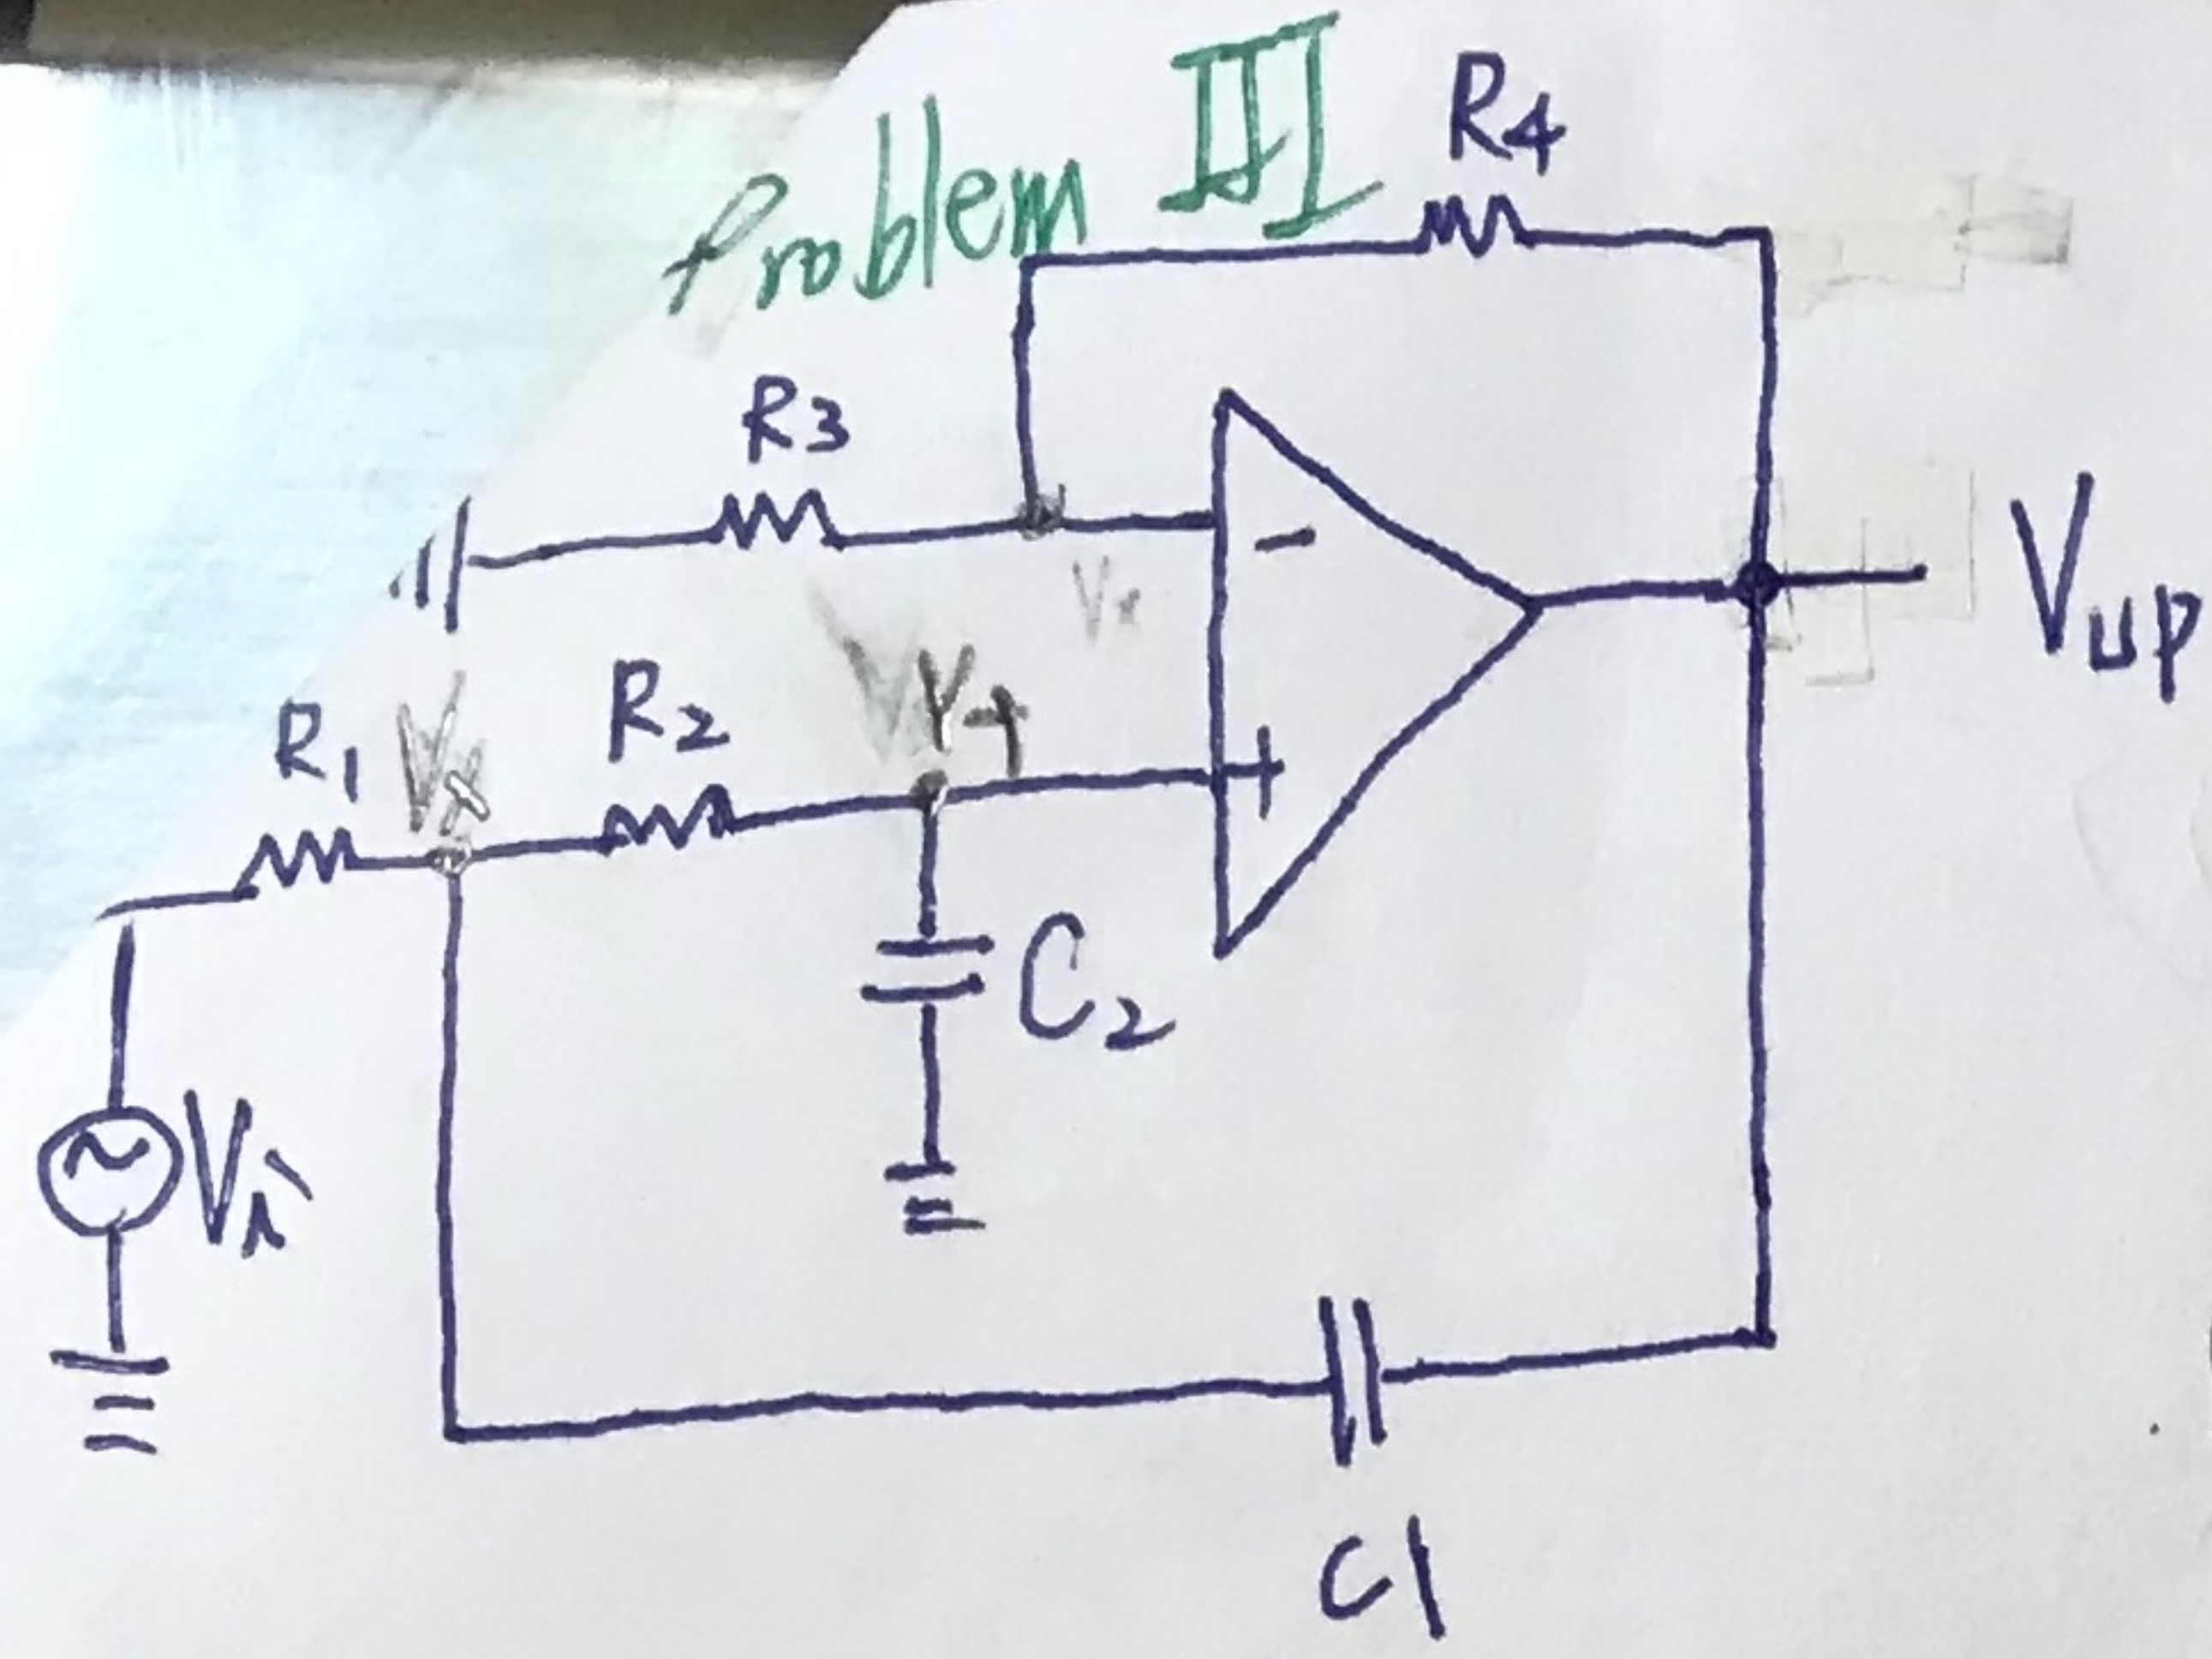 Problem III
R4
R3
Vx
Vup
R2
V+
R1
Vx
-
+
C2
Vi
C1